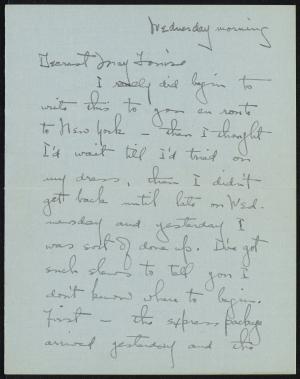 Wednesday morning
Dearest May Louise
I really did begin to
write this to you en route
to New York – then I thought
I'd wait till I'd tried on
my dress, then I didn't
get back until late on Wed.
nesday and yesterday I
was sort of done up. I've got
such to tell you I
don't know where to begin.
First – the express package
arrived yesterday and the